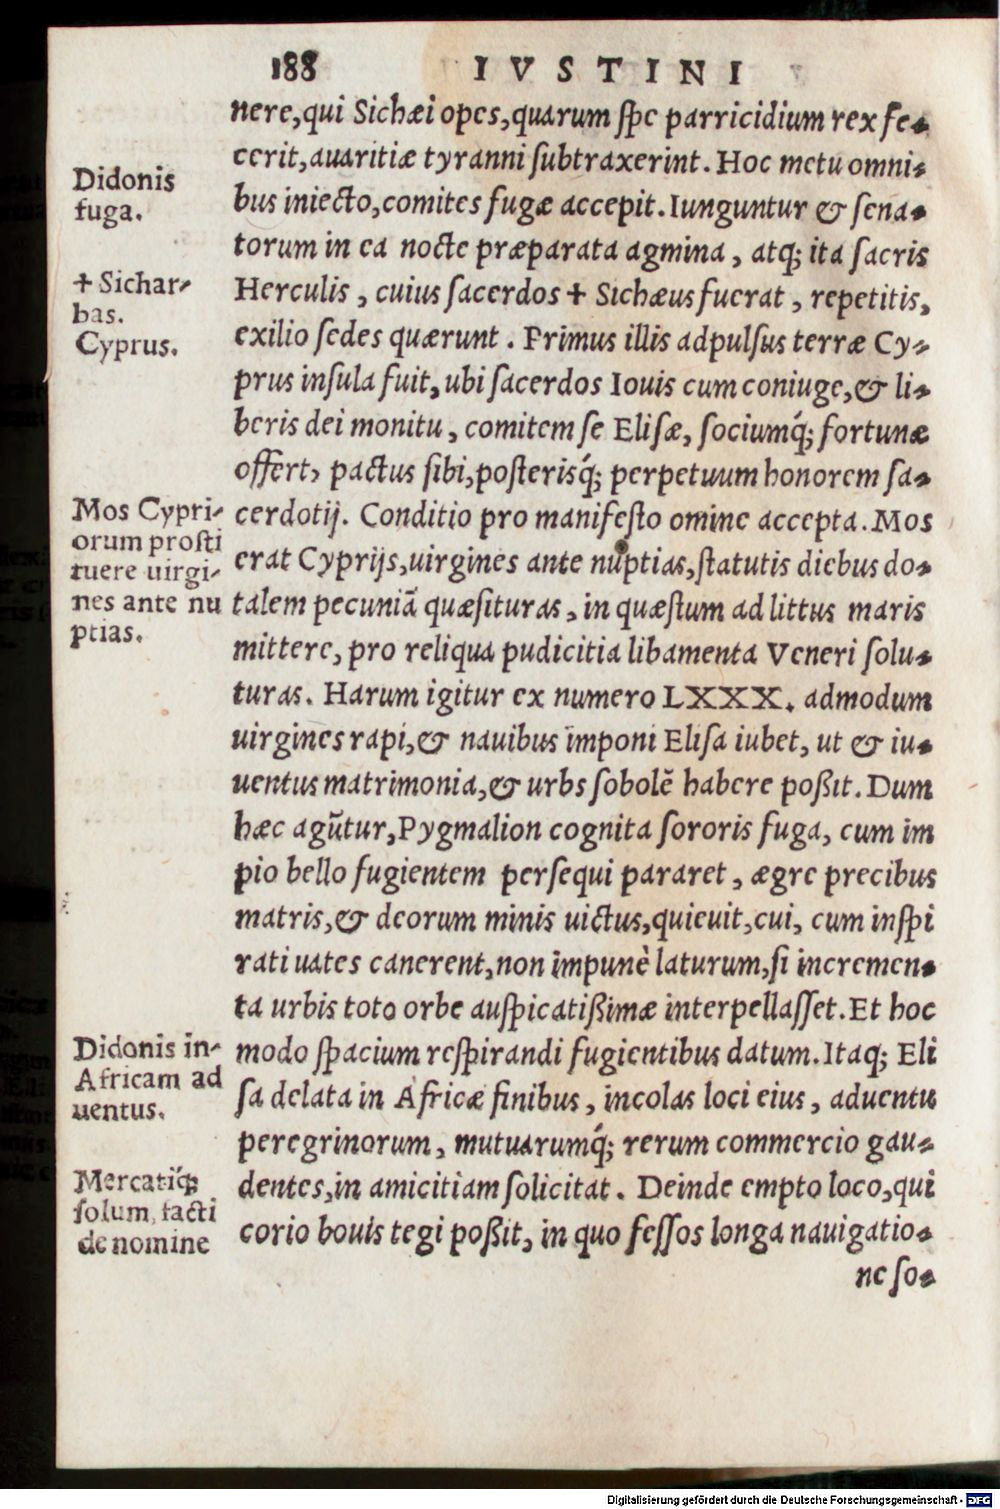 188 IVSTINI
nere, qui Sichæi opes, quarum ſpe parricidium rex fe-
cerit, auaritiæ tyranni ſubtraxerint. Hoc metu omni-
Didonis
fuga.
bus iniecto, comites fugæ accepit. Iunguntur & ſena-
torum in ea nocte præparata agmina, atq; ita ſacris
✝ Sichar-
bas.
Herculis, cuius ſacerdos ✝ Sichæus fuerat, repetitis,
Cyprus.
exilio ſedes quærunt. Primus illis adpulſus terræ Cy-
prus inſula fuit, ubi ſacerdos Iouis cum coniuge, & li-
beris dei monitu, comitem ſe Eliſæ, ſociumq́; fortunæ
offert, pactus ſibi, poſterisq́; perpetuum honorem ſa-
Mos Cypri-
orum proſti
tuere uirgi-
nes ante nu
ptias.
cerdotij. Conditio pro manifeſto omine accepta. Mos
erat Cyprijs, uirgines ante nuptias, ſtatutis diebus do-
talem pecuniā quæſituras, in quæſtum ad littus maris
mittere, pro reliqua pudicitia libamenta Veneri ſolu-
turas. Harum igitur ex numero LXXX. admodum
uirgines rapi, & nauibus imponi Eliſa iubet, ut & iu-
uentus matrimonia, & urbs ſobolē habere poßit. Dum
hæc agūtur, Pygmalion cognita ſororis fuga, cum im
pio bello fugientem perſequi pararet, ægre precibus
matris, & deorum minis uictus, quieuit, cui, cum inſpi
rati uates canerent, non impunè laturum, ſi incremen-
ta urbis toto orbe auſpicatißimæ interpellaſſet. Et hoc
Didonis in-
Africam ad
uentus.
modo ſpacium reſpirandi fugientibus datum. Itaq; Eli
ſa delata in Africæ finibus, incolas loci eius, aduentu
peregrinorum, mutuarumq́; rerum commercio gau-
Mercatiq́;
ſolum, facti
de nomine
dentes, in amicitiam ſolicitat. Deinde empto loco, qui
corio bouis tegi poßit, in quo feſſos longa nauigatio-
ne ſo-
Digitalisierung gefördert durch die Deutsche Forschungsgemeinschaft - DFG